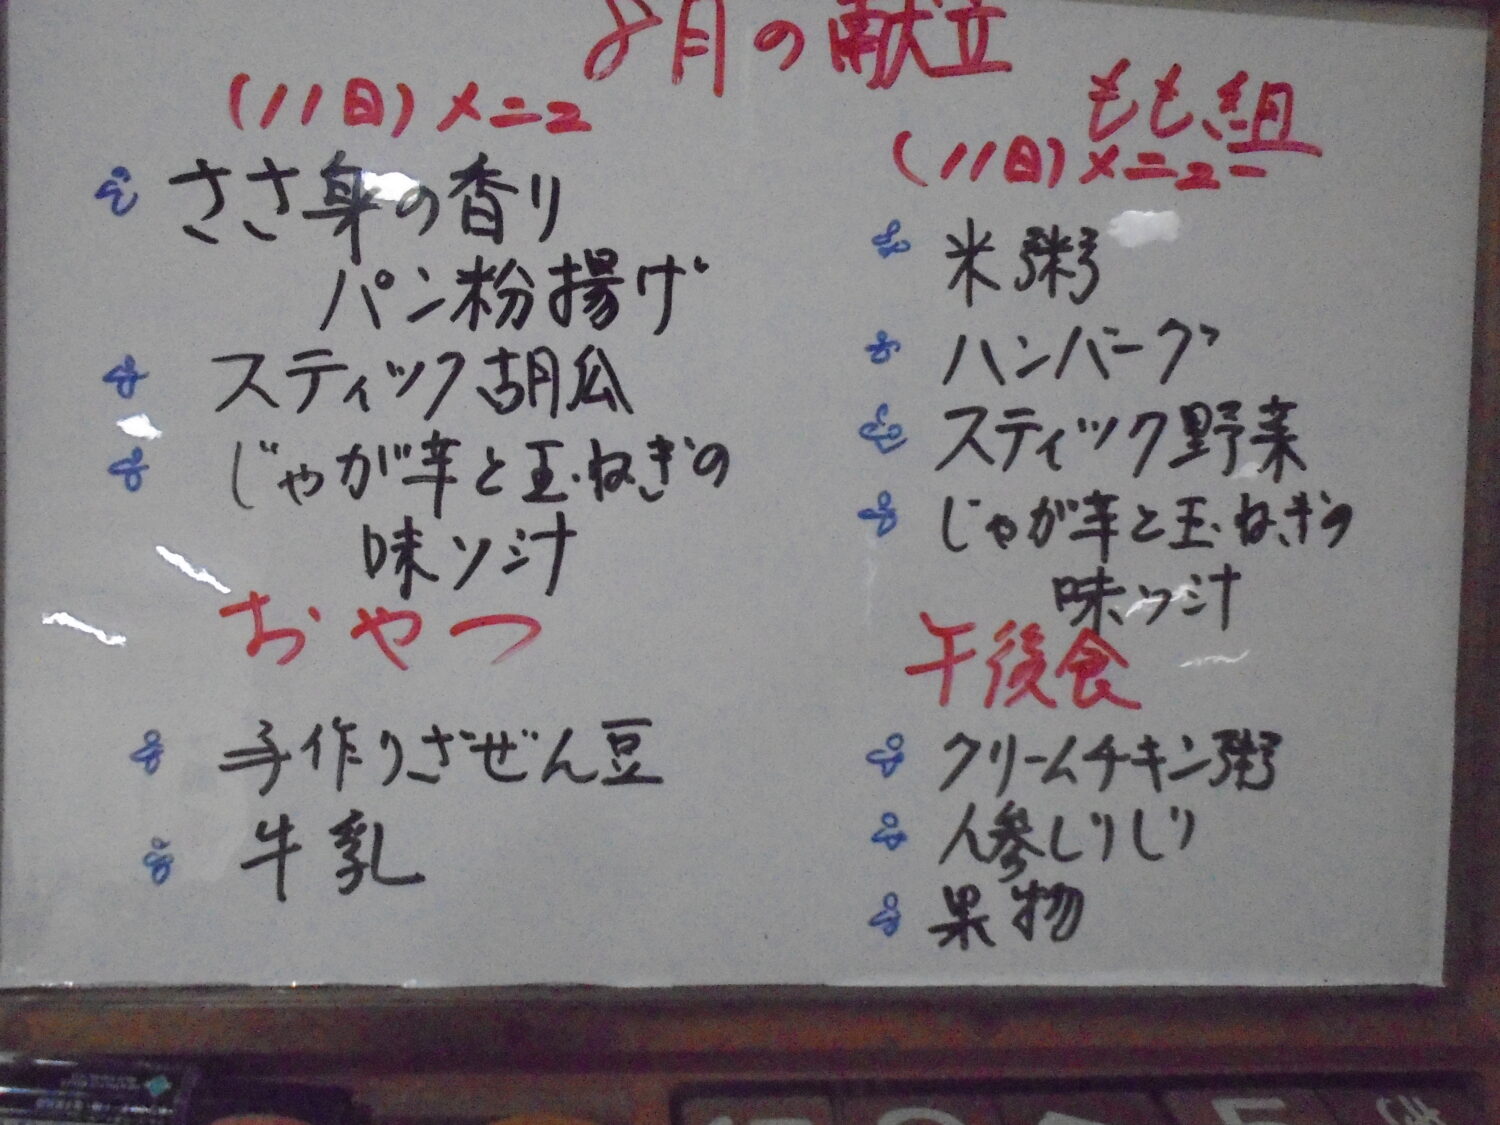 8月の献立
(11日)メニュ
ささ身の香り
パン粉揚げ
スティック胡瓜
じゃが芋と玉ねぎの
味ソ汁
おやつ
手作りざぜん豆
牛乳
もも組
(11日)メニュー
米粥
ハンバーグ
スティック野菜
じゃが芋と玉ねぎの
味ソ汁
午後食
クリームチキン粥
人参しりしり
果物